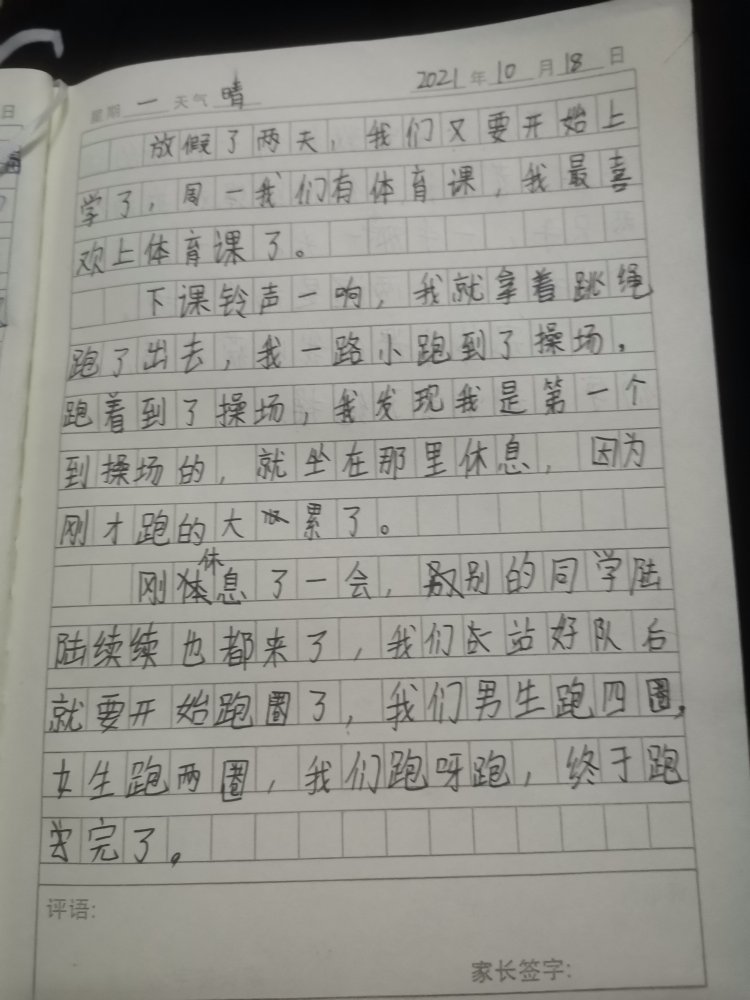 日
星期 一 天气 晴 2021 年 10 月 18 日
放假了两天，我们又要开始上
学了，周一我们有体育课，我最喜
欢上体育课了。
下课铃声一响，我就拿着跳绳
跑了出去，我一路小跑到了操场，
跑着到了操场，我发现我是第一个
到操场的，就坐在那里休息，因为
刚才跑的大累了。
刚休息了一会，别的同学陆
陆续续也都来了，我们站好队后
就要开始跑圈了，我们男生跑四圈，
女生跑两圈，我们跑呀跑，终于跑
完了。
评语:
家长签字: